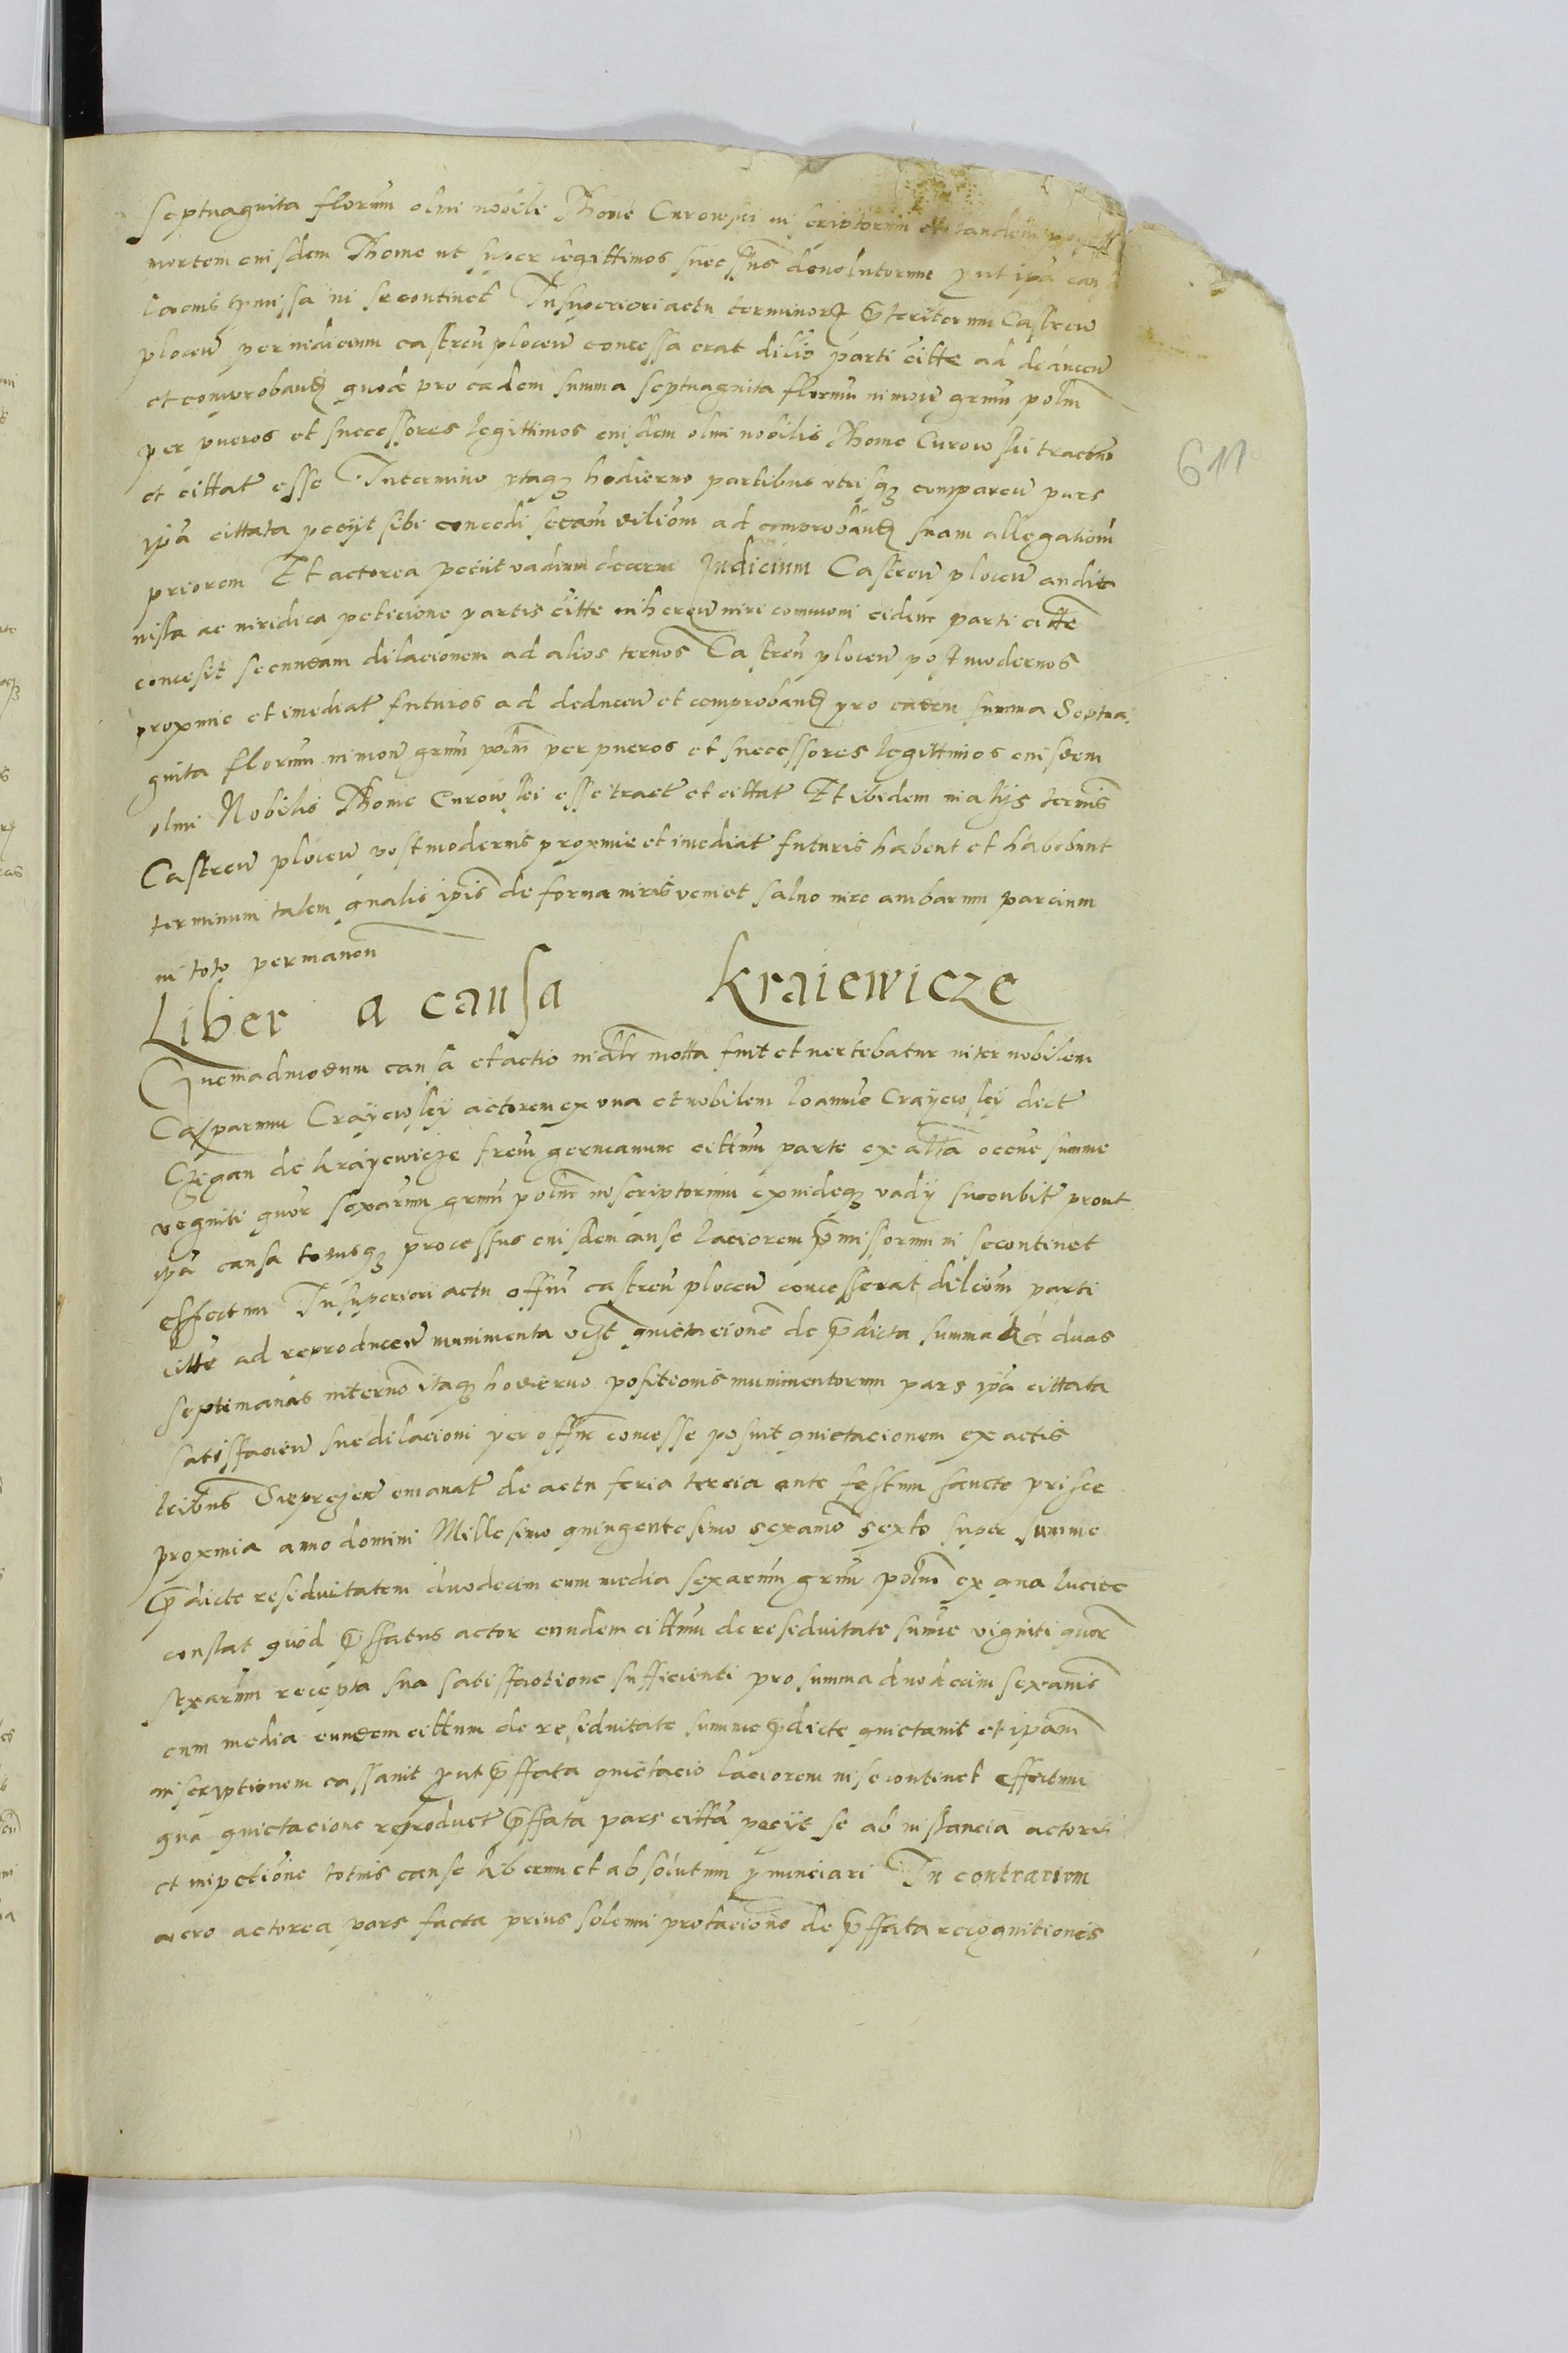 Septuaginta florenũ olmi nobili Thome Curowski inscriptorum et tandem
mortem eiusdem Thome ut super legittimos succssũs devolutorum put ipã cau
lacius pmissa in se continet In superiori actu terminorũ pteritorum Castreñ
ploceñ per iudicium castreñ ploceñ concessa erat dilio parti citte ad deduceñ
et comprobanđ quod pro eadem summa septuaginta florenũ in moñ grnũ polm
per pueros et successores legittimos eiusdem olmi nobilis Thome Curowski tractus
et cittatr esse In termino itaqz hodierno partibus utrisqz compareñ pars
ipã cittata peciit sibi concedi secdam dilióm ad comprobanđ suam allegationem
priorem Et actorea peciit vadium decerni Judicium Castreñ ploceñ audita
visa ac iuridica peticione partis citte inhereñ iuri communi eidem parti citte
concesit secundam dilacionem ad alios termos Castreñ ploceñ post modernos
proxime et imediatr futuros ad deduceñ et comprobanđ pro eadem summa Septua
ginta florenũ in moñ grnũ polm per pueros et successores legittimos eiusdem
olmi Nobilis Thome Curowski esse tractr et cittatr Et ibidem in alijs termis
Castreñ ploceñ post modernis proxime et imediatr futuris habent et habebunt
terminum talem qualis ipis de forma iuris veniet salvo iure ambarum parcium
in toto permaneñ
Liber a causa Kraiewicze
Quemadmodum causa et actio iudlr motta fuit et vertebatur inter nobilem
Casparum Crayewsky actorem ex una et nobilem Joannem Crayewsky dictr
Czigan de Krayewicze frem germanum cittum parte ex altra occoe summe
viginti quor sexarum grnũ polm inscriptorum exindeqz vadij succubitr prout
ipã causa totusqz processus eiusdem cause laciorem pmissorum in se continet
effectum In superiori actu offiũ castreñ ploceñ concesserat dilcióm parti
citte ad reproduceñ munimenta vdzt quietacione de pdicta summa ad duas
septimanas in termo itaqz hodierno positionis munimentorum pars ipã cittata
satisfacieñ sue dilacioni per offm concesse posuit quietacionem ex actis
tribus Sieprzeñ emanatr de actu feria tercia ante festum sancte prisce
proxima anno domini Millesimo quingentesimo sexamo sexto super summe
pdicte residuitatem duodecim cum media sexarũm grnũ polm ex qua lucide
constat quod pffatus actor eundem cittum de residuitate summe viginti quor
sexarum recepta sua satisffactione sufficienti pro summa duodecim sexamis
cum media eundem cittum de residuitate summe pdicte quietavit et ipam
inscriptionem cassavit put pffata quietacio laciorem in se continet effectum
qua quietacione reproductr pffata pars citta peciit se ab instancia actoris
et impetióne totius cause liberum et absolutum pnunciari In contrarium
vero actorea pars facta prius solenni protacione de pffata recognitionis
611